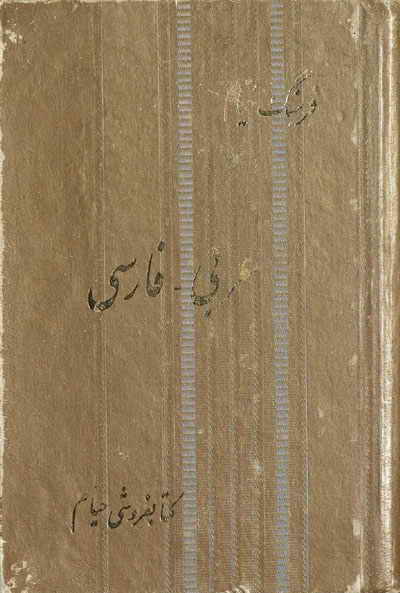 فرهنگ
عربی - فارسی
کتابفروشی خیام